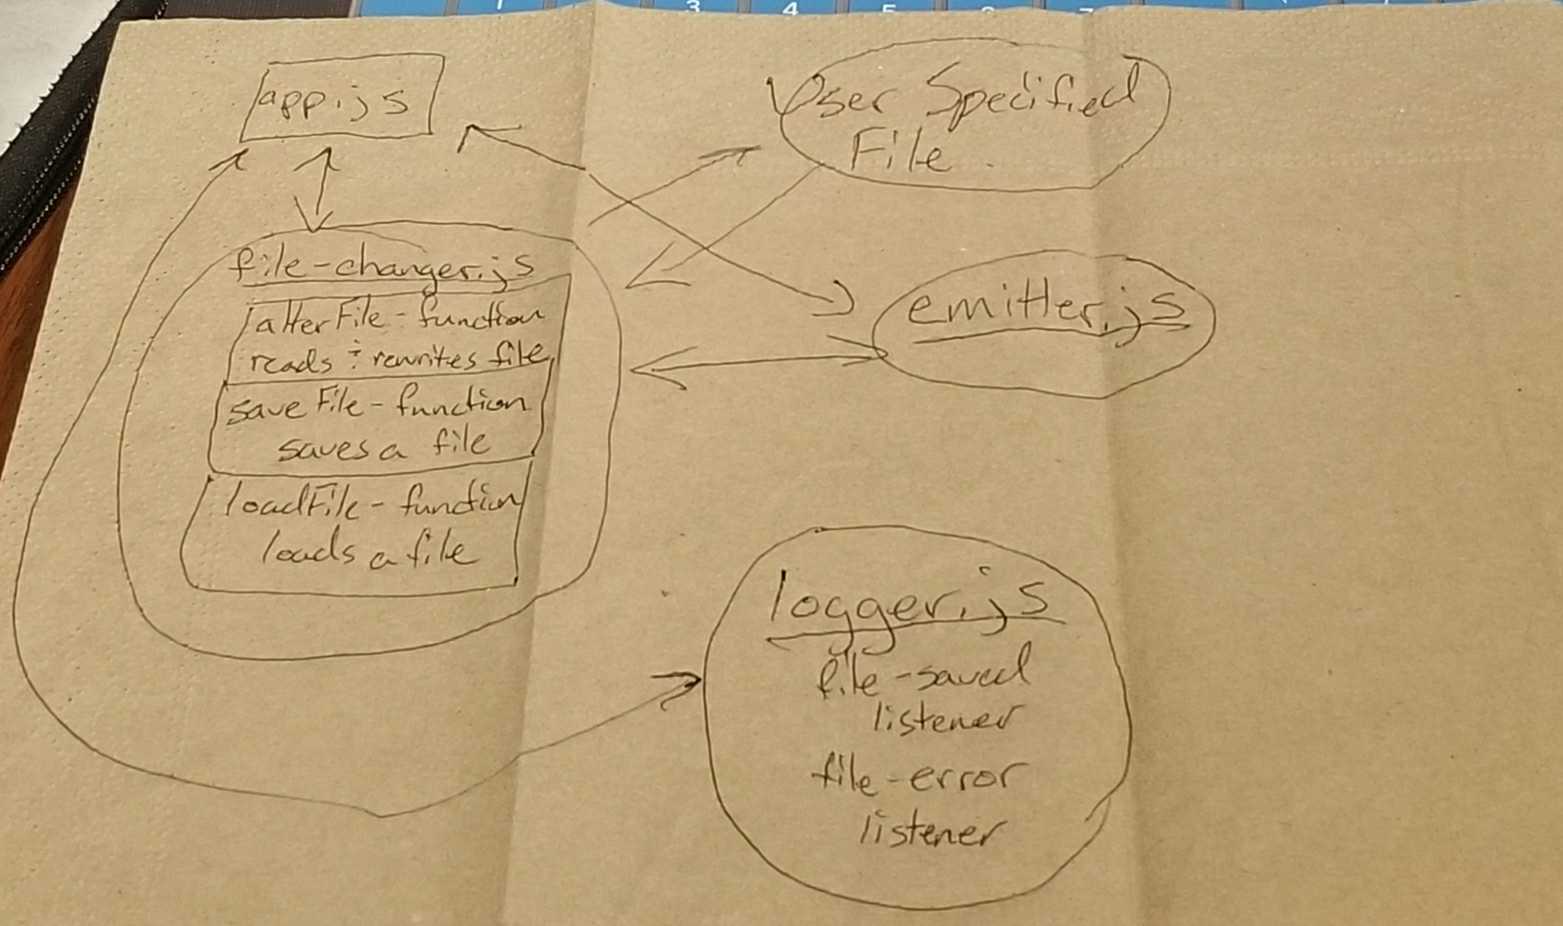 app.js
User Specified
File
file-changer.js
alterFile - function
reads + rewrites file
saveFile - function
saves a file
loadFile - function
loads a file
emitter.js
logger.js
file-saved
listener
file-error
listener